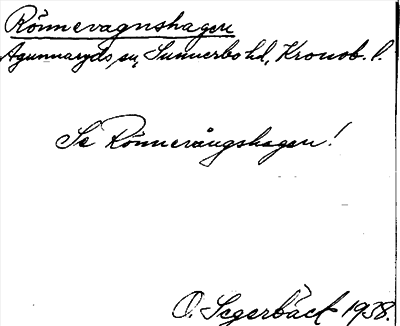 Rönnevagnshagen
Agunnaryds sn, Sunnerbo hd, Kronob. l.
Se Rönnevångshagen!
O. Segerbäck 1938.